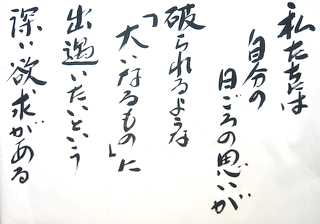 私たちには
自分の
日ごろの思いが
破られるような
「大いなるもの」に
出遇いたいという
深い欲求がある